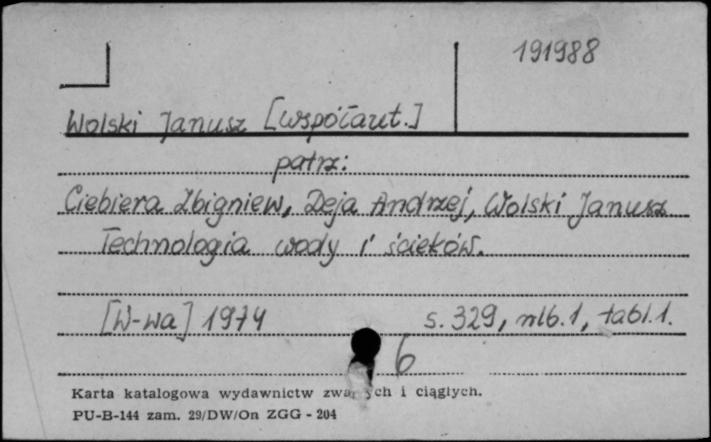 191988
Wolski Janusz [współaut.]
patrz:
Ciebiera Zbigniew, Deja Andrzej, Wolski Janusz
Technologia wody i ścieków.
[W-wa] 1974 s. 329, nlb. 1, tabl. 1.
6
Karta katalogowa wydawnictw i ciągłych.
PU-B-144 zam. 29/DW/On ZGG - 204